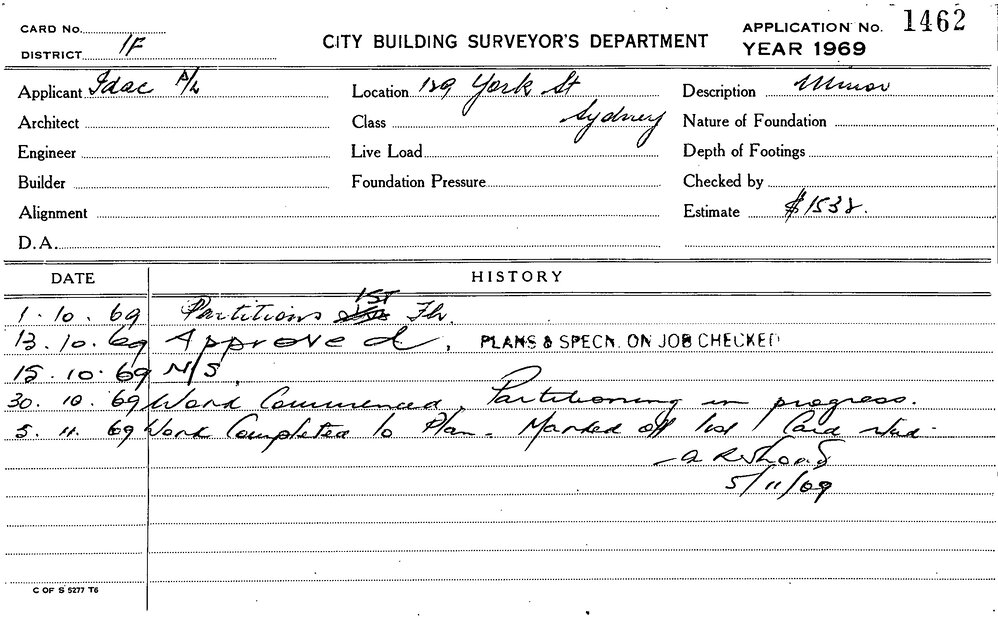 CARD No.
APPLICATION No. 1462
DISTRICT 1F
CITY BUILDING SURVEYOR'S DEPARTMENT
YEAR 1969
Applicant Idac P/L
Location 129 York St
Description Minor
Architect
Class Sydney
Nature of Foundation
Engineer
Live Load
Depth of Footings
Builder
Foundation Pressure
Checked by
Alignment
Estimate $1538.
D.A.
DATE
HISTORY
1.10.69 Partitions 1ST Flr.
13.10.69 Approved. PLANS & SPECN. ON JOB CHECKED
15.10.69 N/S.
30.10.69 Work Commenced. Partitioning in progress.
5.11.69 Work Completed to Plan. Marked off list Card
5/11/69
C OF S 5277 T6